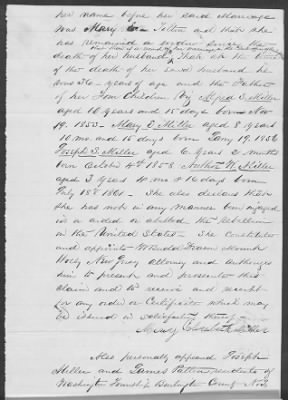 her name before her said Marriage
was Mary E Tilton and that she
has remained a widow since the
death of her husband That at the time
of the death of her said husband he
was 36 years of age and the Father
of her Four Children Viz Alfred S. Miller
aged 10 years and 15 days born Nov
19. 1853 - Mary E. Miller aged 8 years
10 mo and 15 days born Jany 19. 1856
Joseph S. Miller aged 6 years 2 months
born October 4th 1858 Arthur W. Miller
aged 3 years 4 mo & 16 days born
July 18th 1861 - She also declares that
she has not in any manner been engaged
in or aided or abetted the Rebellion
in the United States - She Constitutes
and appoints Mount
Holly New Jersey attorney and authorizes
him to present and prosecute this
claim and to receive and receipt
for any order or Certificate which may
be issued in satisfaction thereof
Mary Elizabeth Miller
Also personally appeared Joseph
Miller and James Patton residents of
Washington Township Burlington County New